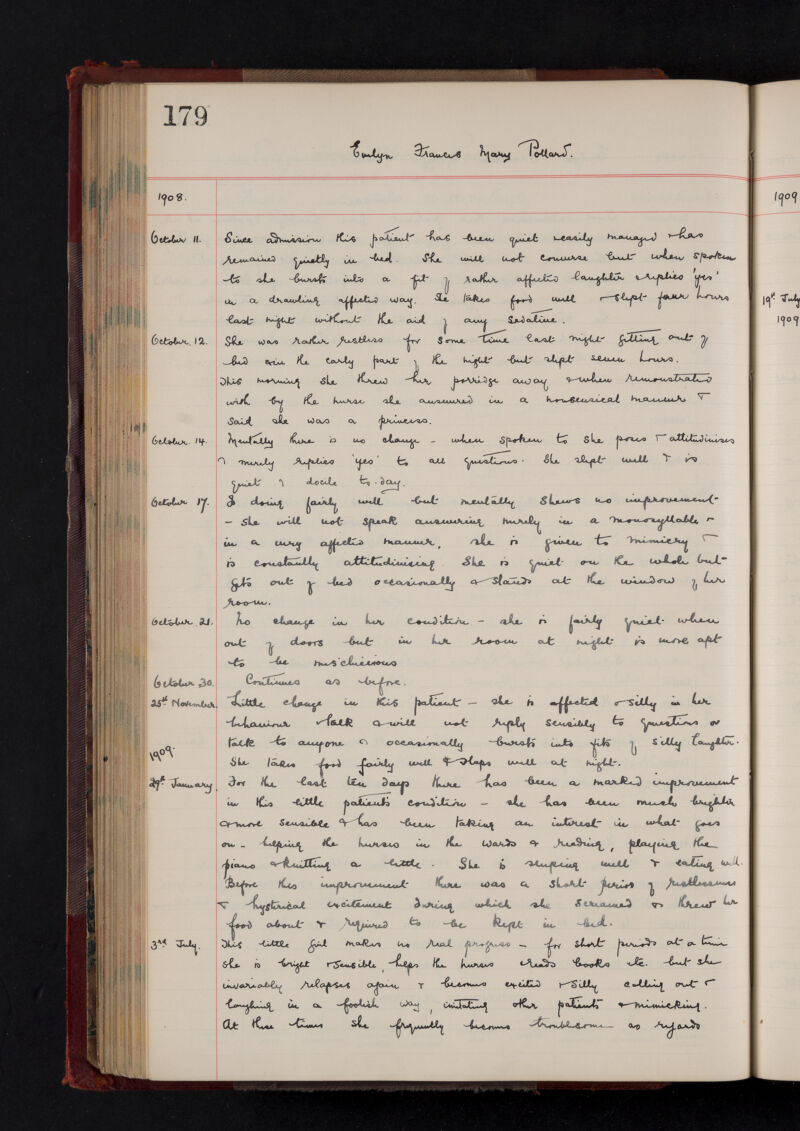 179
Evelyn Frances Mary Pollard.
1908.
1909
October 11. Since admission this patient has been quiet & easily managed & has
remained quietly in bed. She will not converse but when spoken
to she bursts into a fit of rather affected laughter & replies 'yes'
in a drawling affected way. She takes food well & slept four hours
last night without the aid of any sedative.
19th July
1909
October. 12. She was rather restless for some time last night getting out of
bed in the early part of the night but slept seven hours.
This morning she threw her porridge away & when remonstrated
with by the nurse she answered in a nonsensical manner &
said she was a princess.
October. 14. Mentally there is no change - when spoken to she poses & attitudinises
& merely replies 'yes' to all questions. She slept well & is
quiet & docile to-day.
October 17. Is doing fairly well but mentally shews no improvement
- she will not speak answering merely in a monosyllable &
in a very affected manner, she is given to mimicry &
is constantly attitudinising. She is quiet on the whole but
gets out of bed occasionally & stands at the window of her
room.
October. 21. No change in her condition - she is fairly quiet when
out of doors but in her room at night is more apt
to be mischievous
October 30. Continues as before.
25th November. Little change in this patient - she is affected & silly in her
behaviour & talk & will not reply sensibly to questions or
talk to anyone & occasionally bursts into fits of silly laughter.
She takes food fairly well & sleeps well at night.
1909.
29th January. For the last ten days there has been a marked improvement
in this little patient's condition - she has been much brighter
& more sensible & has been taking an interest in what goes
on - helping the nurses in the wards & reading, playing the
piano & knitting a little. She is sleeping well & eating well.
Before this improvement there was a short period of restlessness
& hysterical excitement during which she screamed & threw her
food about & required to be kept in bed.
3rd July. This little girl makes no real progress - for short periods at a time
she is bright & sensible, helps the nurses & reads books etc. but she
invariably relapses again & becomes excited & silly calling out &
laughing in a foolish way, imitating other patients & mimicking.
At these times she frequently becomes troublesome as regards